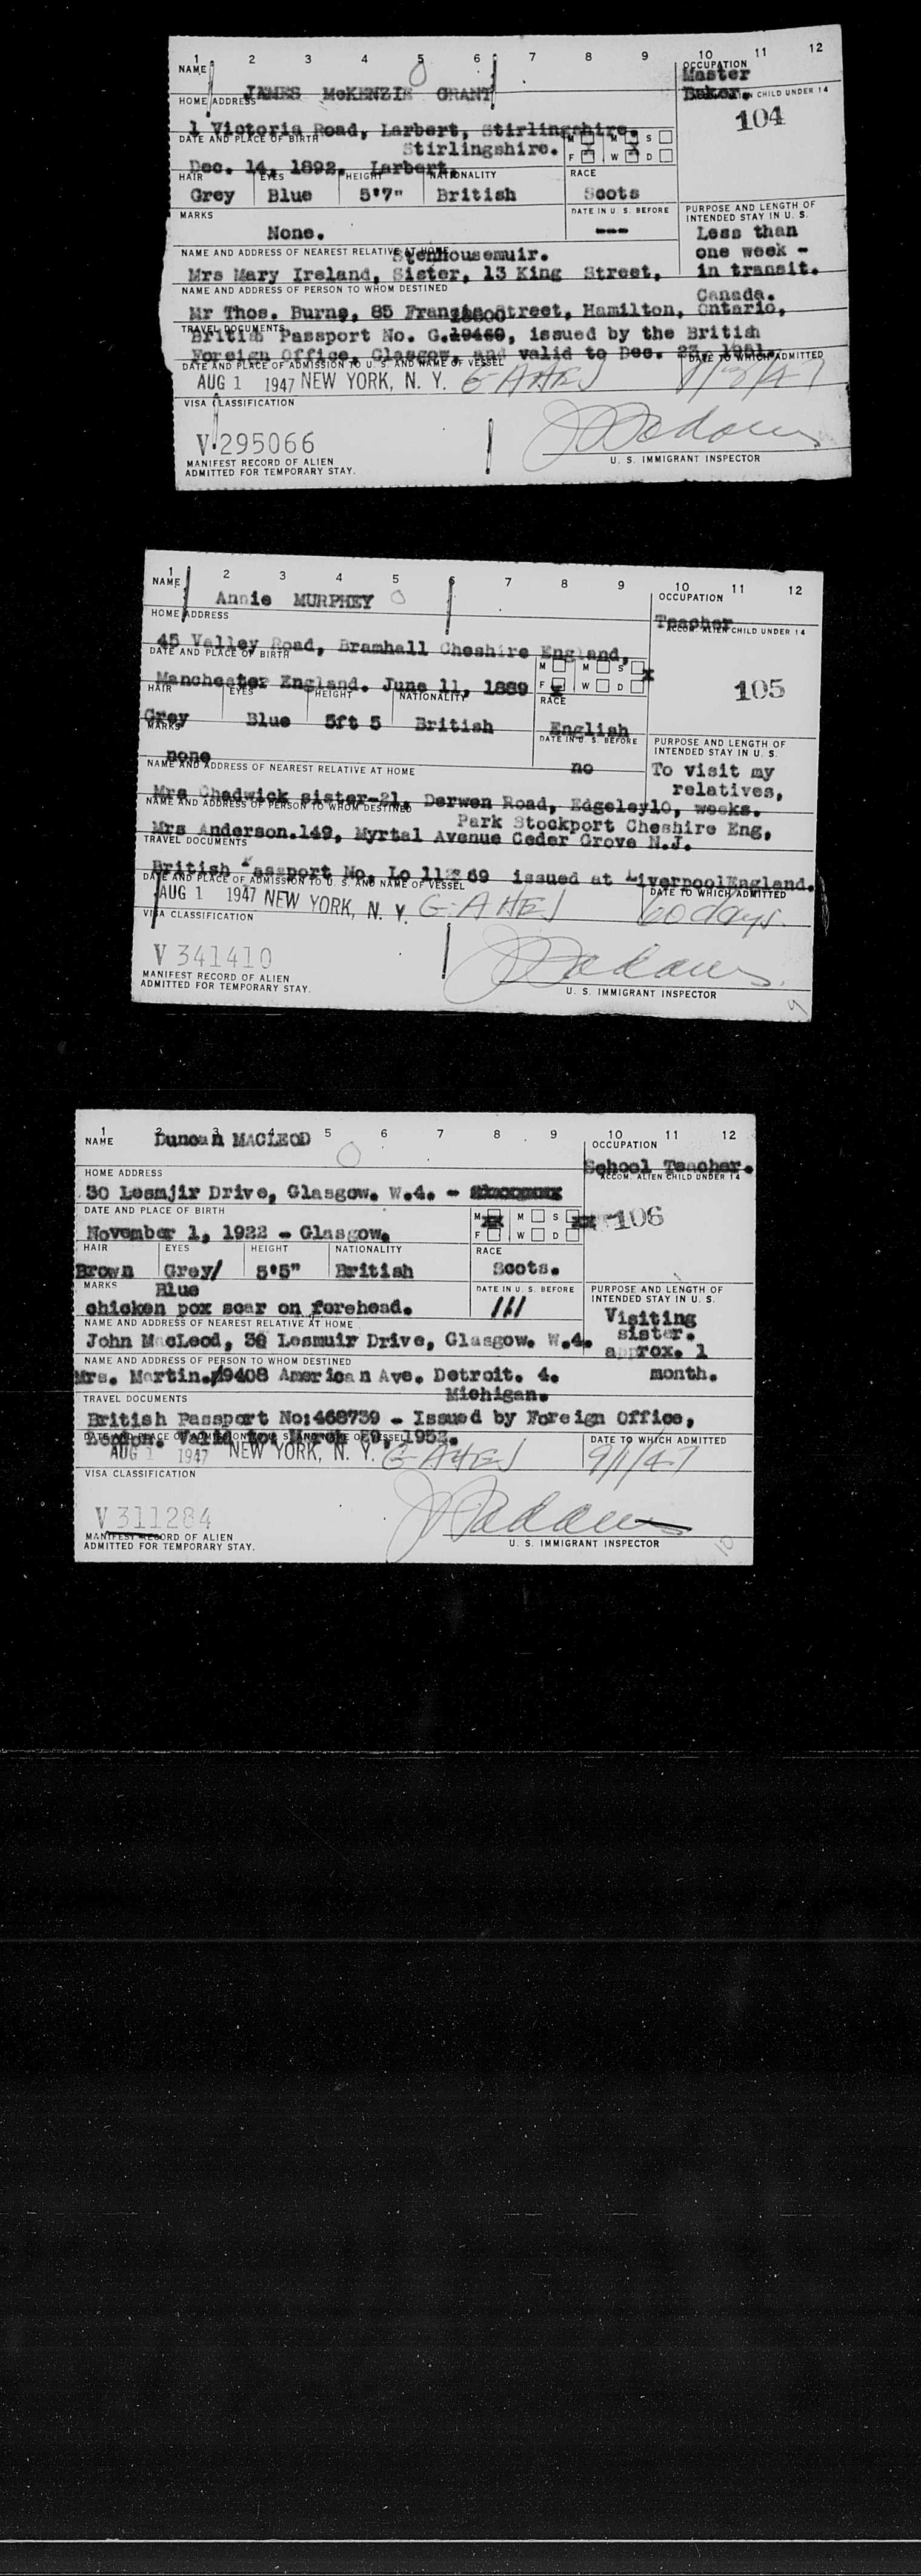 1 2 3 4 5 6 7 8 9 10 11 12
NAME
OCCUPATION
JAMES McKENZIE GRANT
Master
Baker.
CHILD UNDER 14
HOME ADDRESS
104
1 Victoria Road, Larbert, Stirlingshire.
DATE AND PLACE OF BIRTH
Stirlingshire.
M M S
F W D
Dec. 14, 1892, Larbert,
HAIR EYES HEIGHT NATIONALITY RACE
Grey Blue 5'7" British Scots
MARKS
DATE IN U. S. BEFORE
PURPOSE AND LENGTH OF
INTENDED STAY IN U. S.
None.
---
Less than
one week -
in transit.
NAME AND ADDRESS OF NEAREST RELATIVE AT HOME
Stenhousemuir.
Mrs Mary Ireland, Sister, 13 King Street,
NAME AND ADDRESS OF PERSON TO WHOM DESTINED
Canada.
Mr Thos. Burns, 85 Francis Street, Hamilton, Ontario,
TRAVEL DOCUMENTS
British Passport No. G. issued by the British
Foreign Office, Glasgow, and valid to Dec.
DATE AND PLACE OF ADMISSION TO U. S. AND NAME OF VESSEL
DATE TO WHICH ADMITTED
AUG 1 1947 NEW YORK, N. Y.
VISA CLASSIFICATION
V 295066
MANIFEST RECORD OF ALIEN
ADMITTED FOR TEMPORARY STAY.
U. S. IMMIGRANT INSPECTOR
1 2 3 4 5 6 7 8 9 10 11 12
NAME
OCCUPATION
Annie MURPHEY
Teacher
ACCOM. ALIEN CHILD UNDER 14
HOME ADDRESS
45 Valley Road, Bramhall Cheshire England,
DATE AND PLACE OF BIRTH
M M S X
F X W D
105
Manchester England. June 11, 1889
HAIR EYES HEIGHT NATIONALITY RACE
Grey Blue 5ft 5 British English
MARKS
DATE IN U. S. BEFORE
PURPOSE AND LENGTH OF
INTENDED STAY IN U. S.
none
no
To visit my
relatives,
NAME AND ADDRESS OF NEAREST RELATIVE AT HOME
Mrs Chadwick sister-21, Derwen Road, Edgeley 10, weeks.
NAME AND ADDRESS OF PERSON TO WHOM DESTINED
Park Stockport Cheshire Eng,
Mrs Anderson.149, Myrtal Avenue Ceder Grove N.J.
TRAVEL DOCUMENTS
British Passport No. Lo issued at Liverpool England.
DATE AND PLACE OF ADMISSION TO U. S. AND NAME OF VESSEL
DATE TO WHICH ADMITTED
AUG 1 1947 NEW YORK, N. Y. 60 days.
VISA CLASSIFICATION
V 341410
MANIFEST RECORD OF ALIEN
ADMITTED FOR TEMPORARY STAY.
U. S. IMMIGRANT INSPECTOR
9
1 2 3 4 5 6 7 8 9 10 11 12
NAME
Duncan MACLEOD
OCCUPATION
School Teacher.
ACCOM. ALIEN CHILD UNDER 14
HOME ADDRESS
30 Lesmjir Drive, Glasgow. W.4. -
DATE AND PLACE OF BIRTH
M M S
F W D
106
November 1, 1922 - Glasgow.
HAIR EYES HEIGHT NATIONALITY RACE
Brown Grey/ 5'5" British Scots.
Blue
MARKS
DATE IN U. S. BEFORE
PURPOSE AND LENGTH OF
INTENDED STAY IN U. S.
chicken pox scar on forehead.
///
Visiting
sister.
approx. 1
month.
NAME AND ADDRESS OF NEAREST RELATIVE AT HOME
John MacLeod, 30 Lesmuir Drive, Glasgow. W.4.
NAME AND ADDRESS OF PERSON TO WHOM DESTINED
Mrs. Martin. 19408 American Ave. Detroit. 4.
Michigan.
TRAVEL DOCUMENTS
British Passport No:468739 - Issued by Foreign Office,
London. Valid to March 1952.
DATE AND PLACE OF ADMISSION TO U. S. AND NAME OF VESSEL
DATE TO WHICH ADMITTED
AUG 1 1947 NEW YORK, N. Y. 9/1/47
VISA CLASSIFICATION
V 311284
MANIFEST RECORD OF ALIEN
ADMITTED FOR TEMPORARY STAY.
U. S. IMMIGRANT INSPECTOR
10